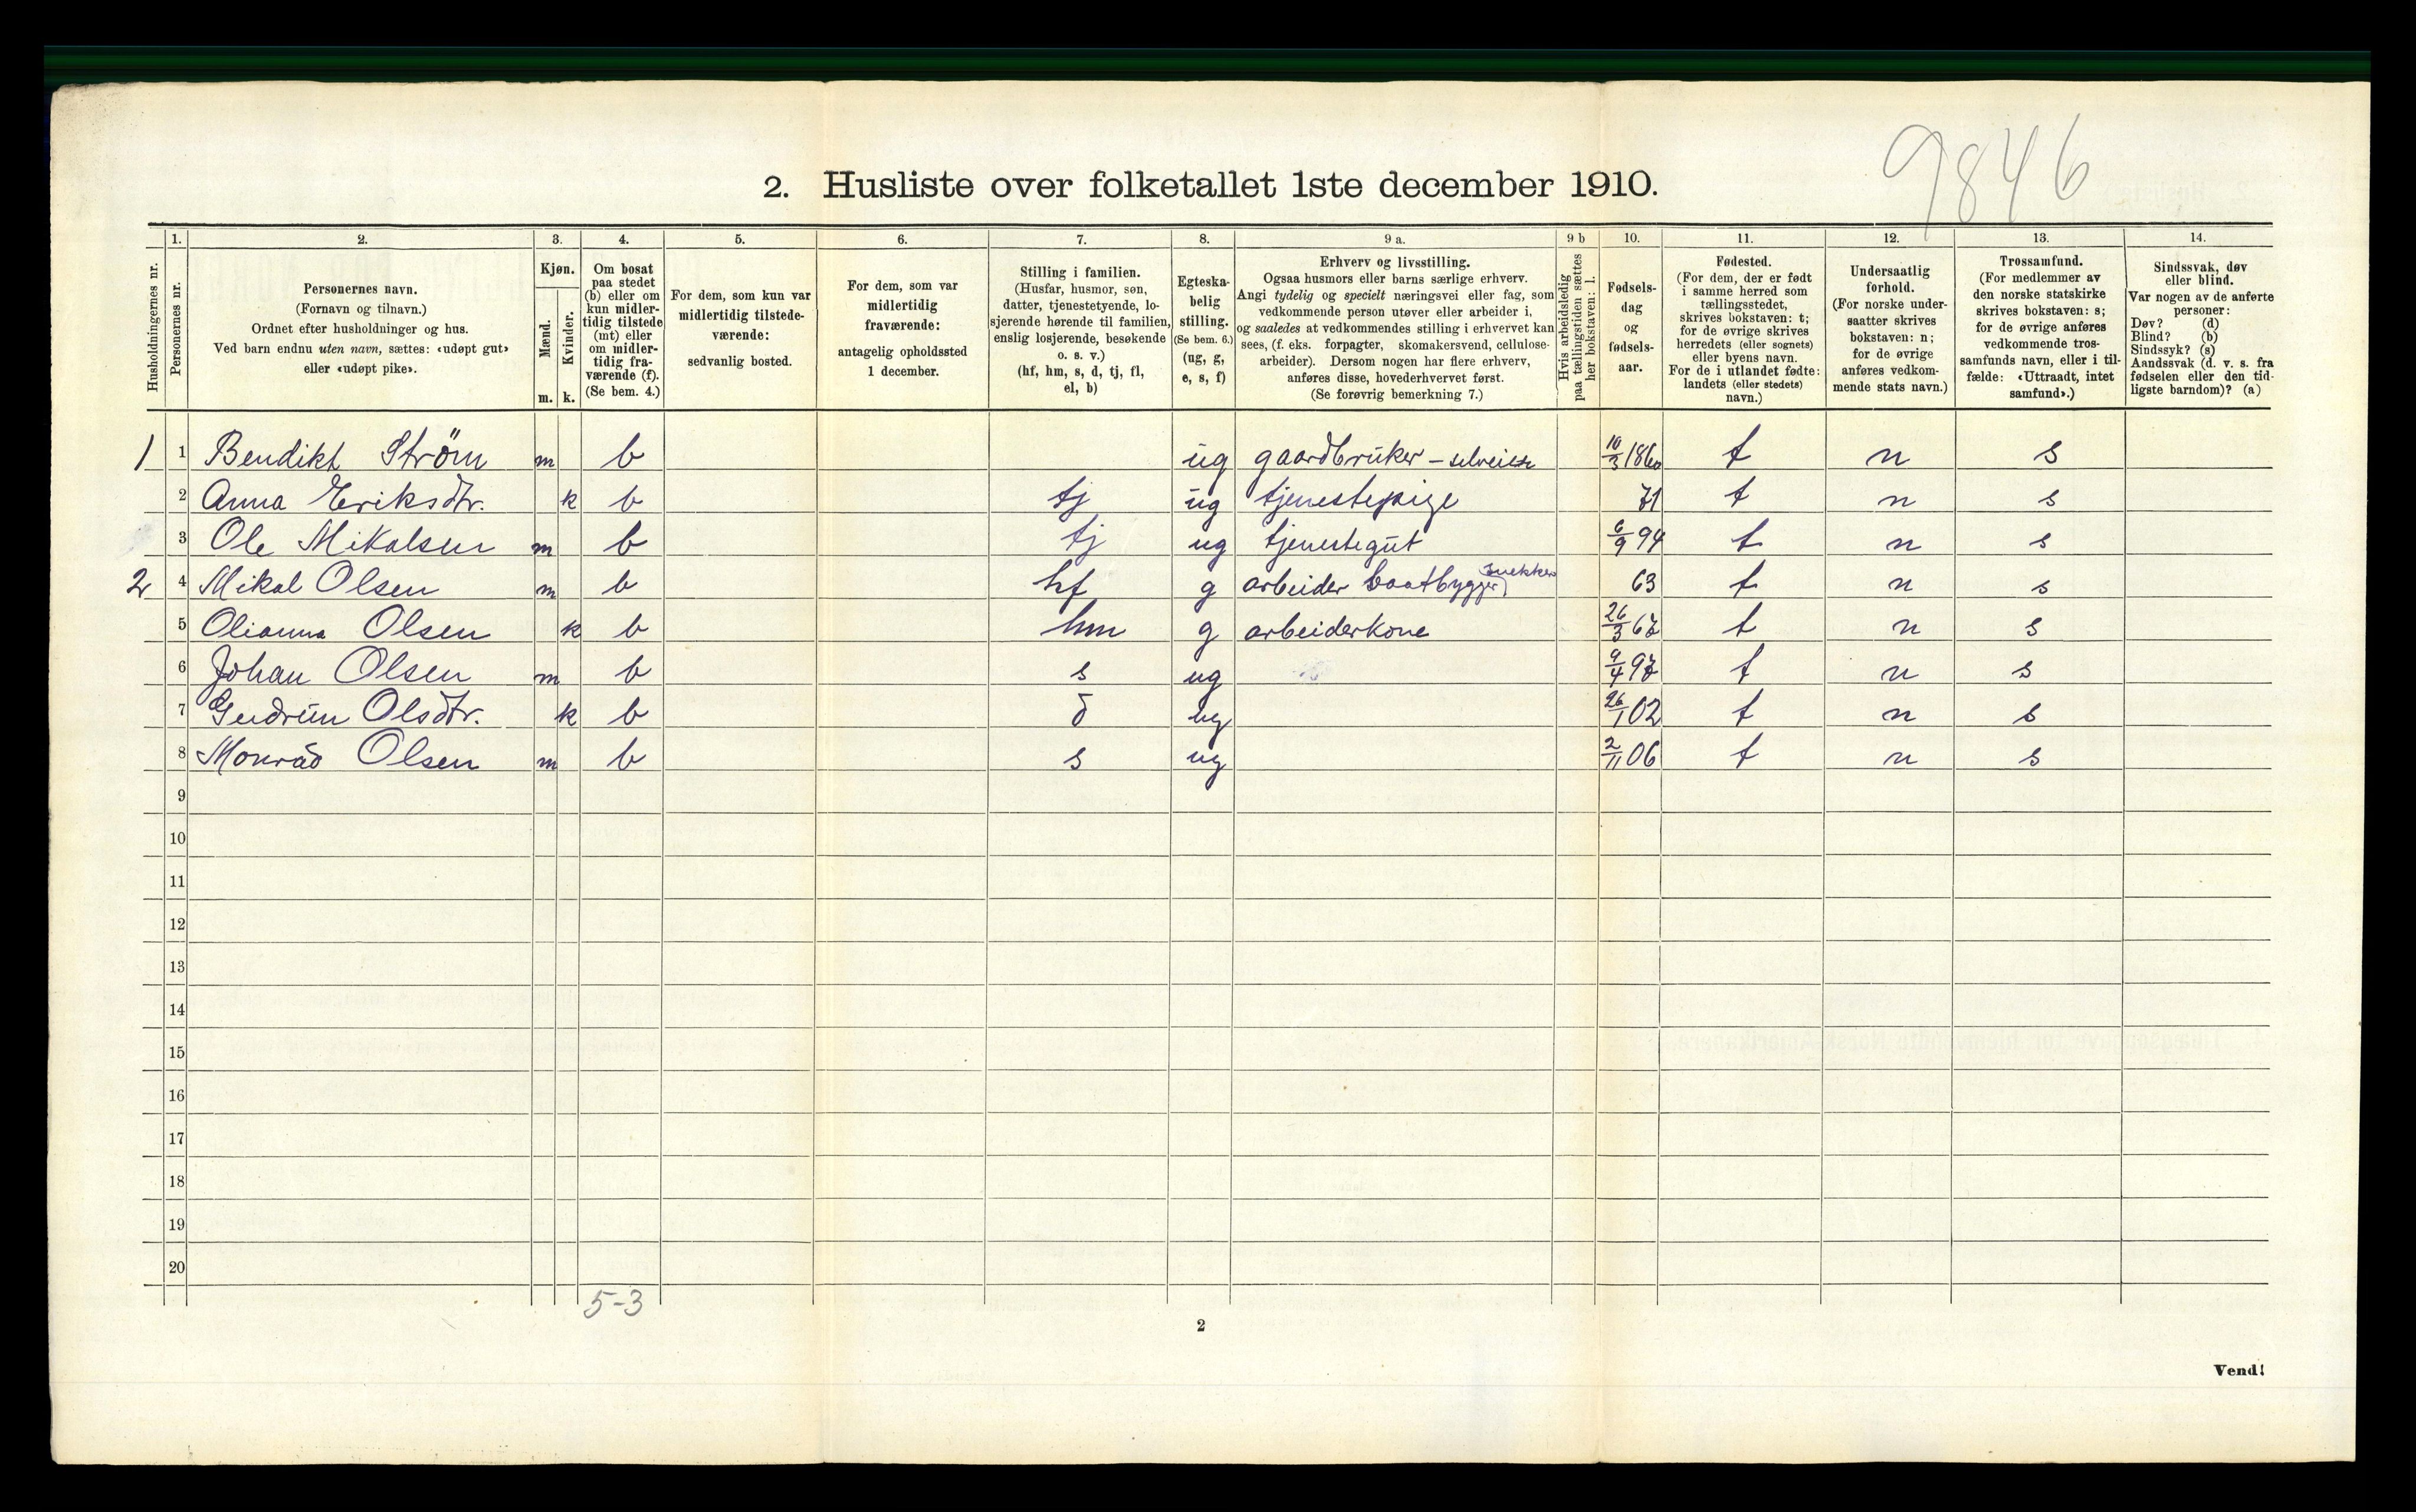 9846
2. Husliste over folketallet 1ste december 1910.
Husholdningernes nr.
1.
Personernes nr.
2.
Personernes navn.
(Fornavn og tilnavn.)
Ordnet efter husholdninger og hus.
Ved barn endnu uten navn, sættes: «udøpt gut»
eller «udøpt pike».
3.
Kjøn.
Mænd.
Kvinder.
m. k.
4.
Om bosat
paa stedet
(b) eller om
kun midler-
tidig tilstede
(mt) eller
om midler-
tidig fra-
værende (f).
(Se bem. 4.)
5.
For dem, som kun var
midlertidig tilstede-
værende:
sedvanlig bosted.
6.
For dem, som var
midlertidig
fraværende:
antagelig opholdssted
1 december.
7.
Stilling i familien.
(Husfar, husmor, søn,
datter, tjenestetyende, lo-
sjerende hørende til familien,
enslig losjerende, besøkende
o. s. v.)
(hf, hm, s, d, tj, fl,
el, b)
8.
Egteska-
belig
stilling.
(Se bem. 6.)
(ug, g,
e, s, f)
9 a.
Erhverv og livsstilling.
Ogsaa husmors eller barns særlige erhverv.
Angi tydelig og specielt næringsvei eller fag, som
vedkommende person utøver eller arbeider i,
og saaledes at vedkommendes stilling i erhvervet kan
sees, (f. eks. forpagter, skomakersvend, cellulose-
arbeider). Dersom nogen har flere erhverv,
anføres disse, hovederhvervet først.
(Se forøvrig bemerkning 7.)
9 b
Hvis arbeidsledig
paa tællingstiden sættes
her bokstaven: l.
10.
Fødsels-
dag
og
fødsels-
aar.
11.
Fødested.
(For dem, der er født
i samme herred som
tællingsstedet,
skrives bokstaven: t;
for de øvrige skrives
herredets (eller sognets)
eller byens navn.
For de i utlandet fødte:
landets (eller stedets)
navn.)
12.
Undersaatlig
forhold.
(For norske under-
saatter skrives
bokstaven: n;
for de øvrige
anføres vedkom-
mende stats navn.)
13.
Trossamfund.
(For medlemmer av
den norske statskirke
skrives bokstaven: s;
for de øvrige anføres
vedkommende tros-
samfunds navn, eller i til-
fælde: «Uttraadt, intet
samfund».)
14.
Sindssvak, døv
eller blind.
Var nogen av de anførte
personer:
Døv? (d)
Blind? (b)
Sindssyk? (s)
Aandssvak (d. v. s. fra
fødselen eller den tid-
ligste barndom)? (a)
1 1 Bendikt Ström m b ug gaardbruker - selveier 10/3 1860 t n s
2 Anna Eriksdtr. k b tj ug tjenestepige 71 t n s
3 Ole Mikalsen m b tj ug tjenestegut 6/9 94 t n s
2 4 Mikal Olsen m b hf g arbeider baatbygger snekker 63 t n s
5 Olianna Olsen k b hm g arbeiderkone 26/3 67 t n s
6 Johan Olsen m b s ug 9/4 97 t n s
7 Gudrun Olsdtr. k b d ug 26/1 02 t n s
8 Monrad Olsen m b s ug 2/11 06 t n s
9
10
11
12
13
14
15
16
17
18
19
20
5-3
2
Vend!